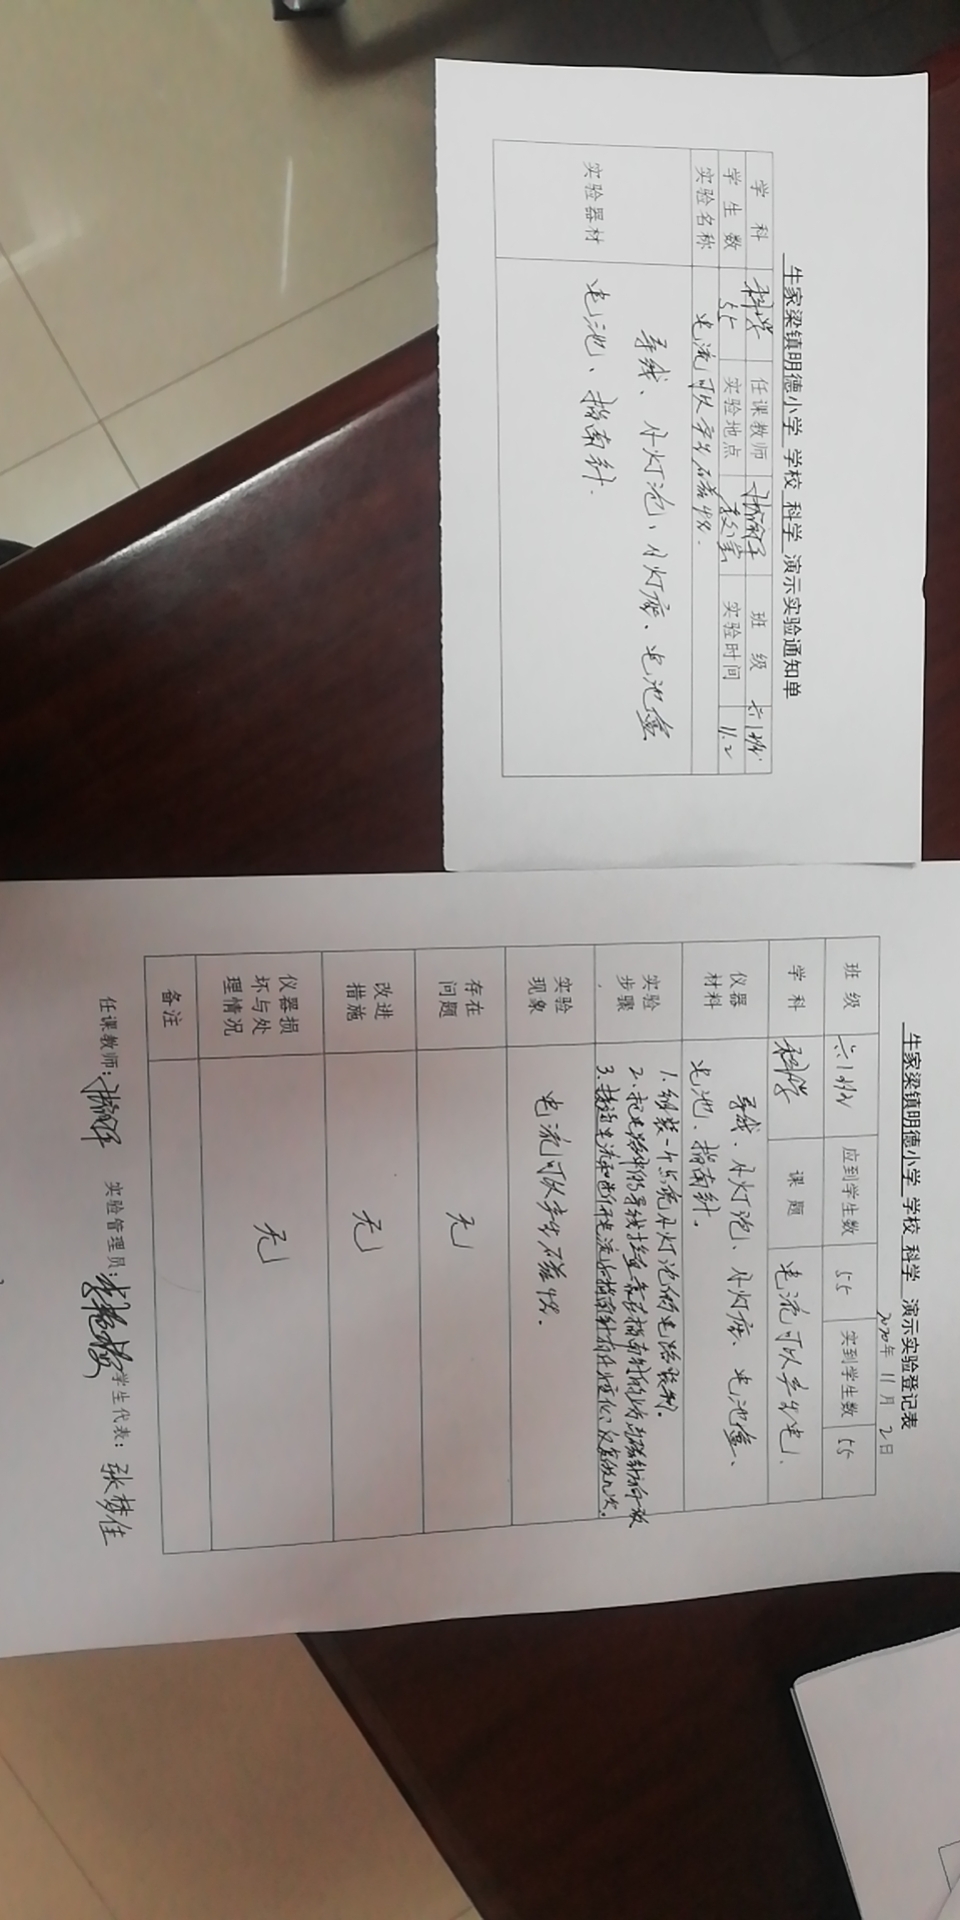 牛家梁镇明德小学 学校 科学 演示实验通知单
学 科 科学 任课教师 班 级 六1班
学生数 55 实验地点 教室 实验时间 11.2
实验名称 电流可以产生磁性.
实验器材 导线、小灯泡、小灯座、电池盒
电池、指南针.
牛家梁镇明德小学 学校 科学 演示实验登记表
2020年 11月 2日
班 级 六1班 应到学生数 55 实到学生数 55
学 科 科学 课 题 电流可以产生电.
仪器材料 导线、小灯泡、小灯座、电池盒、
电池、指南针.
实验步骤 1.组装一个点亮小灯泡的电路装制.
2.把电路中的导线拉直靠在指南针的上方与磁针方向一致
3.接通电流和断开电流看指南针有什么变化,反复做几次.
实验现象 电流可以产生磁性.
存在问题 无
改进措施 无
仪器损坏与处理情况 无
备注
任课教师: 实验管理员: 学生代表: 张梦佳